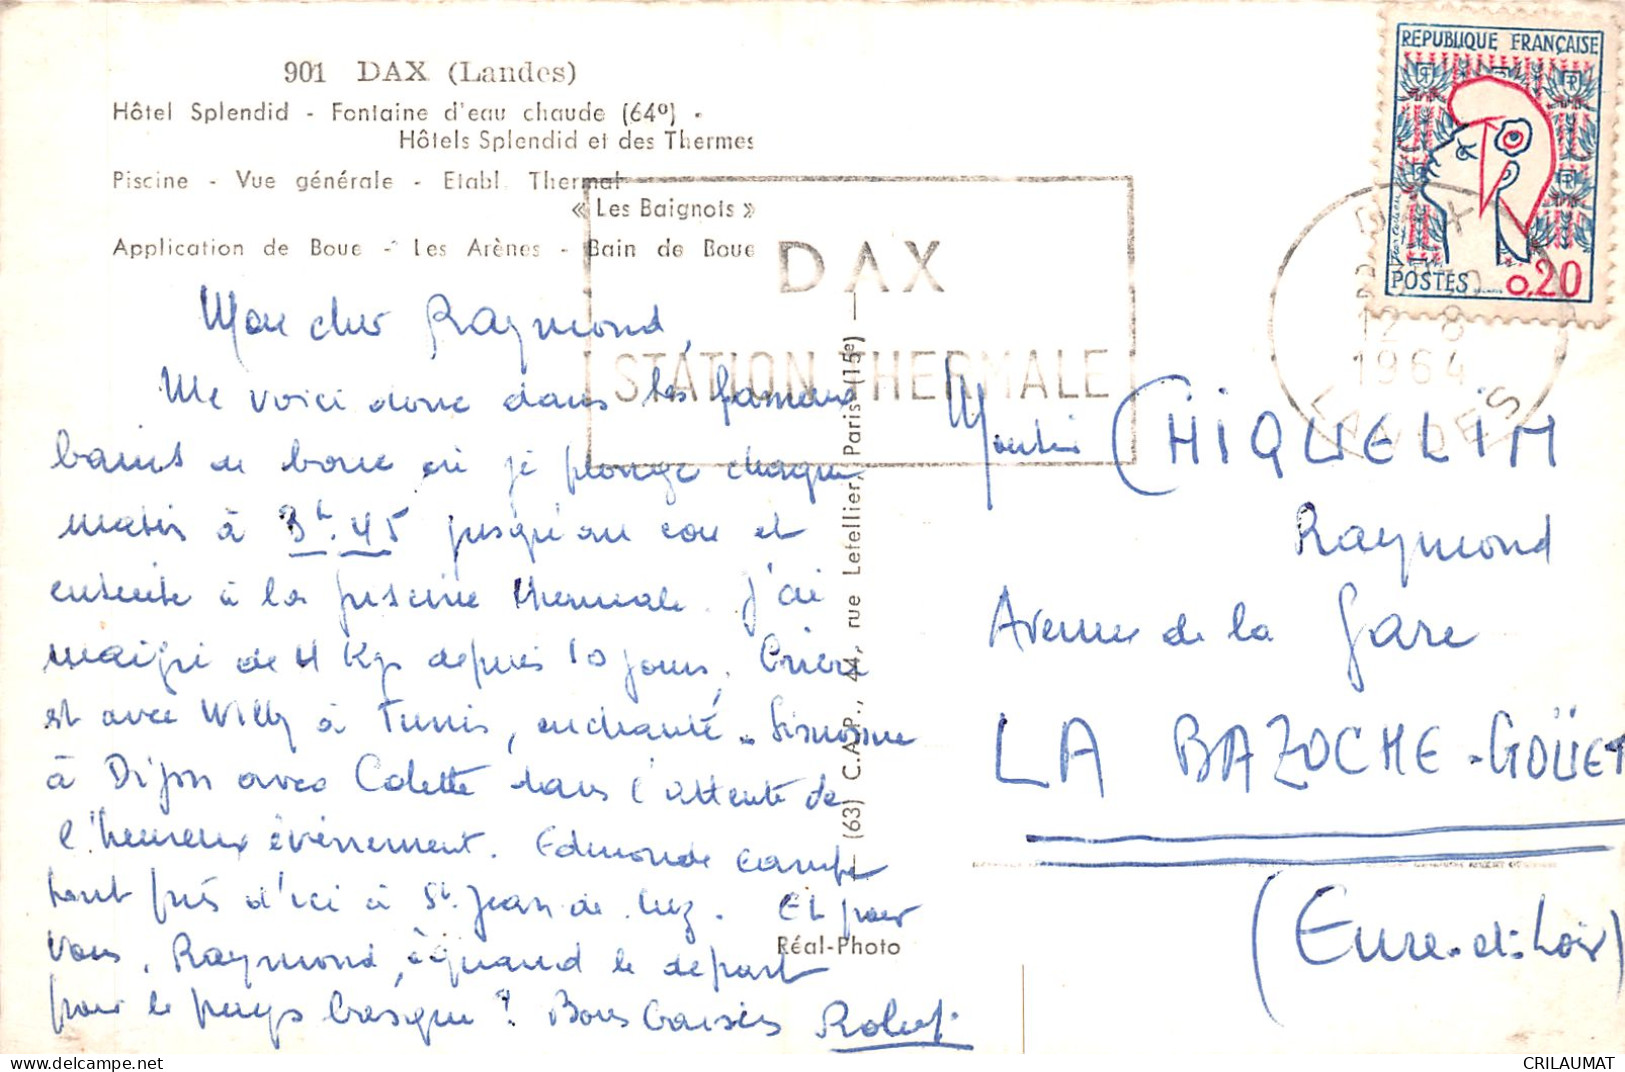 901 DAX (Landes)
Hôtel Splendid - Fontaine d'eau chaude (64º) -
Hôtels Splendid et des Thermes
Piscine - Vue générale - Etabl. Thermal
« Les Baignots »
Application de Boue - Les Arènes - Bain de Boue
DAX
STATION THERMALE
REPUBLIQUE FRANÇAISE
POSTES 0,20
DAX
12 - 8
1964
LANDES
Mon cher Raymond,
Me voici donc dans les fameux
bains de boue où je plonge chaque
matin à 3h.45 jusqu'au cou et
ensuite à la piscine thermale. J'ai
maigri de 4 Kgs depuis 10 jours.
est avec Willy à Tunis, enchanté. Simone
à Dijon avec Colette dans l'attente de
l'heureux événement. Edmonde campe
tout près d'ici à St. Jean de Luz. Et pour
vous, Raymond, à quand le départ
pour le pays basque? Bons baisers Robert
(63) C.A.P., 44, rue Letellier, Paris (15e)
Réal-Photo
Monsieur CHIQUELIM
Raymond
Avenue de la Gare
LA BAZOCHE-GOÜET
(Eure-et-Loir)
CRILAUMAT